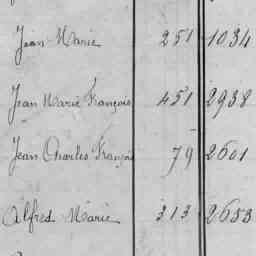 Jean Marie 251 1034
Jean Marie François 451 2938
Jean Charles François 79 2601
Alfred Marie 313 2653